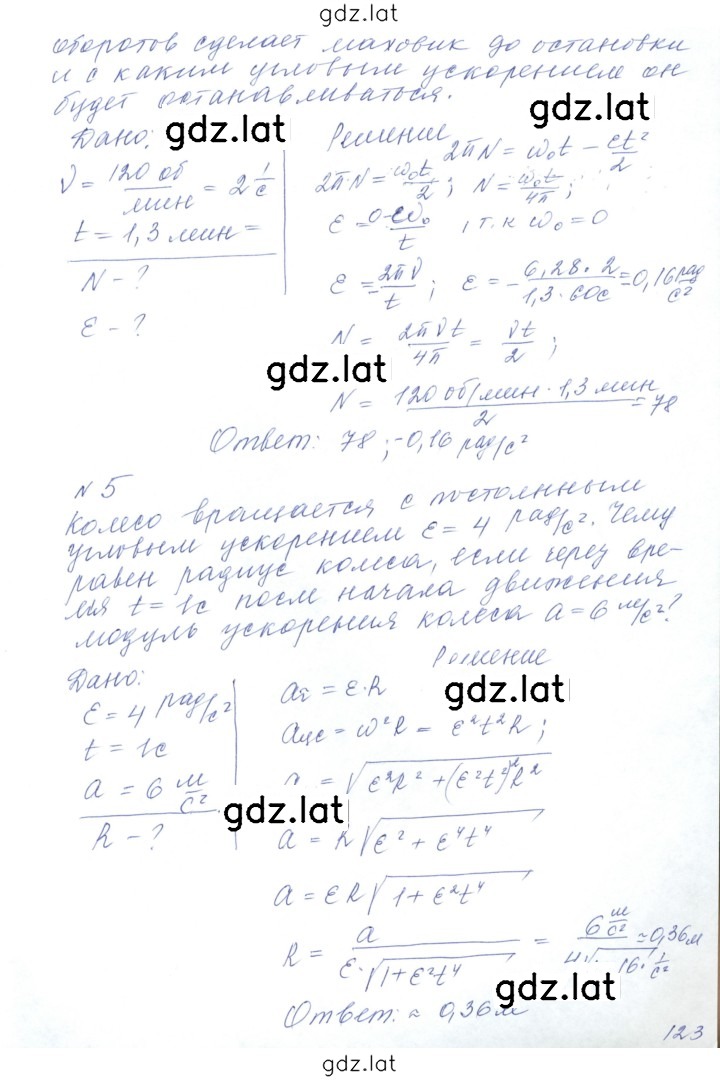 gdz.lat
оборотов сделает маховик до остановки
и с каким угловым ускорением он
будет останавливаться.
gdz.lat
gdz.lat
Дано:
ν = 120 об/мин = 2 1/с
t = 1,3 мин =
N - ?
ε - ?
Решение
2πN = ω₀t - εt²/2
2πN = ω₀t/2 ; N = ω₀t/4π ;
ε = 0-ω₀/t , т.к ω₀ = 0
ε = -2πν/t ; ε = - 6,28 · 2/1,3 · 60с = 0,16 рад/с²
N = 2πνt/4π = νt/2 ;
gdz.lat
N = 120 об/мин · 1,3 мин/2 = 78
Ответ: 78 ; -0,16 рад/с²
N 5
Колесо вращается с постоянным
угловым ускорением ε = 4 рад/с². Чему
равен радиус колеса, если через вре-
мя t = 1с после начала движения
модуль ускорения колеса a = 6 м/с²?
Дано:
ε = 4 рад/с²
t = 1с
a = 6 м/с²
R - ?
Решение
gdz.lat
aτ = ε·R
aцс = ω²R = ε²t²R ;
= √ε²R² + (ε²t²)²R²
gdz.lat
a = R√ε² + ε⁴t⁴
a = εR√1 + ε²t⁴
R = a/ε·√1+ε²t⁴ = 6 м/с²/4√ 16· 1/с² ≈ 0,36м
gdz.lat
Ответ: ≈ 0,36м
123
gdz.lat